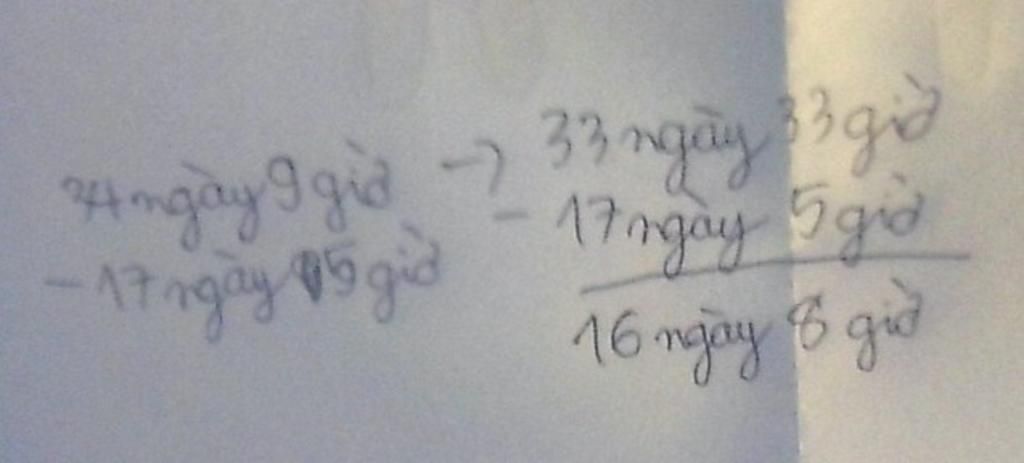 34 ngày 9 giờ → 33 ngày 33 giờ
- 17 ngày 15 giờ - 17 ngày 5 giờ
16 ngày 8 giờ